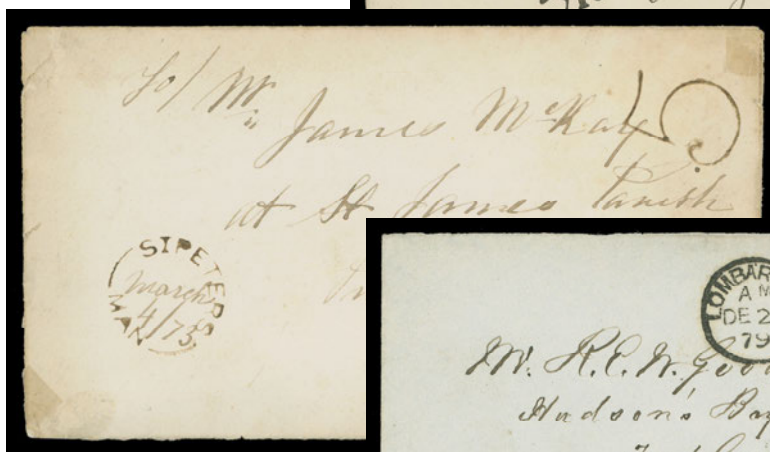 To/ Mr James McKay 5
at St James Parish
ST PETERS
March
4/73
MAN
LOMBAR
A M
DE 2
79
Mr. R.E.W. Goo
Hudson's Bay